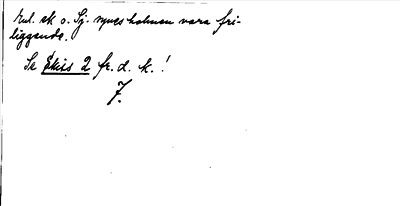 Enl. ek o. Sj. synes holmen vara fri-
liggande.
Se Skiss 2 fr. d. k.!
7.